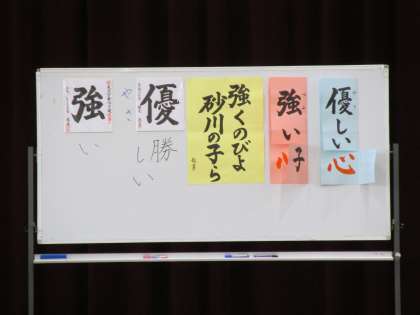 優しい心
強い子
強くのびよ
砂川の子ら
優勝
やさ
しい
強い